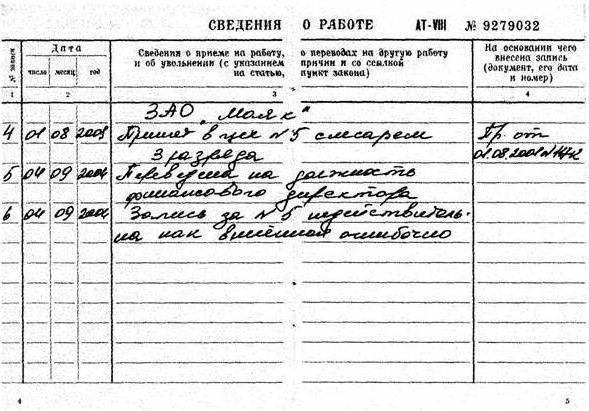 СВЕДЕНИЯ О РАБОТЕ АТ-VIII № 9279032
№ записи
Дата
число месяц год
Сведения о приеме на работу, о переводах на другую работу
и об увольнении (с указанием причин и со ссылкой
на статью, пункт закона)
На основании чего
внесена запись
(документ, его дата
и номер)
1 2 3 4
ЗАО „Маяк"
4 01 08 Принят в цех №5 слесарем Пр. от
3 разряда 01.08.2001 №
5 04 09 2004 Переведен на должность
финансового директора
6 04 09 2004 Запись за №5 недействитель-
на как внесённая ошибочно
4 5